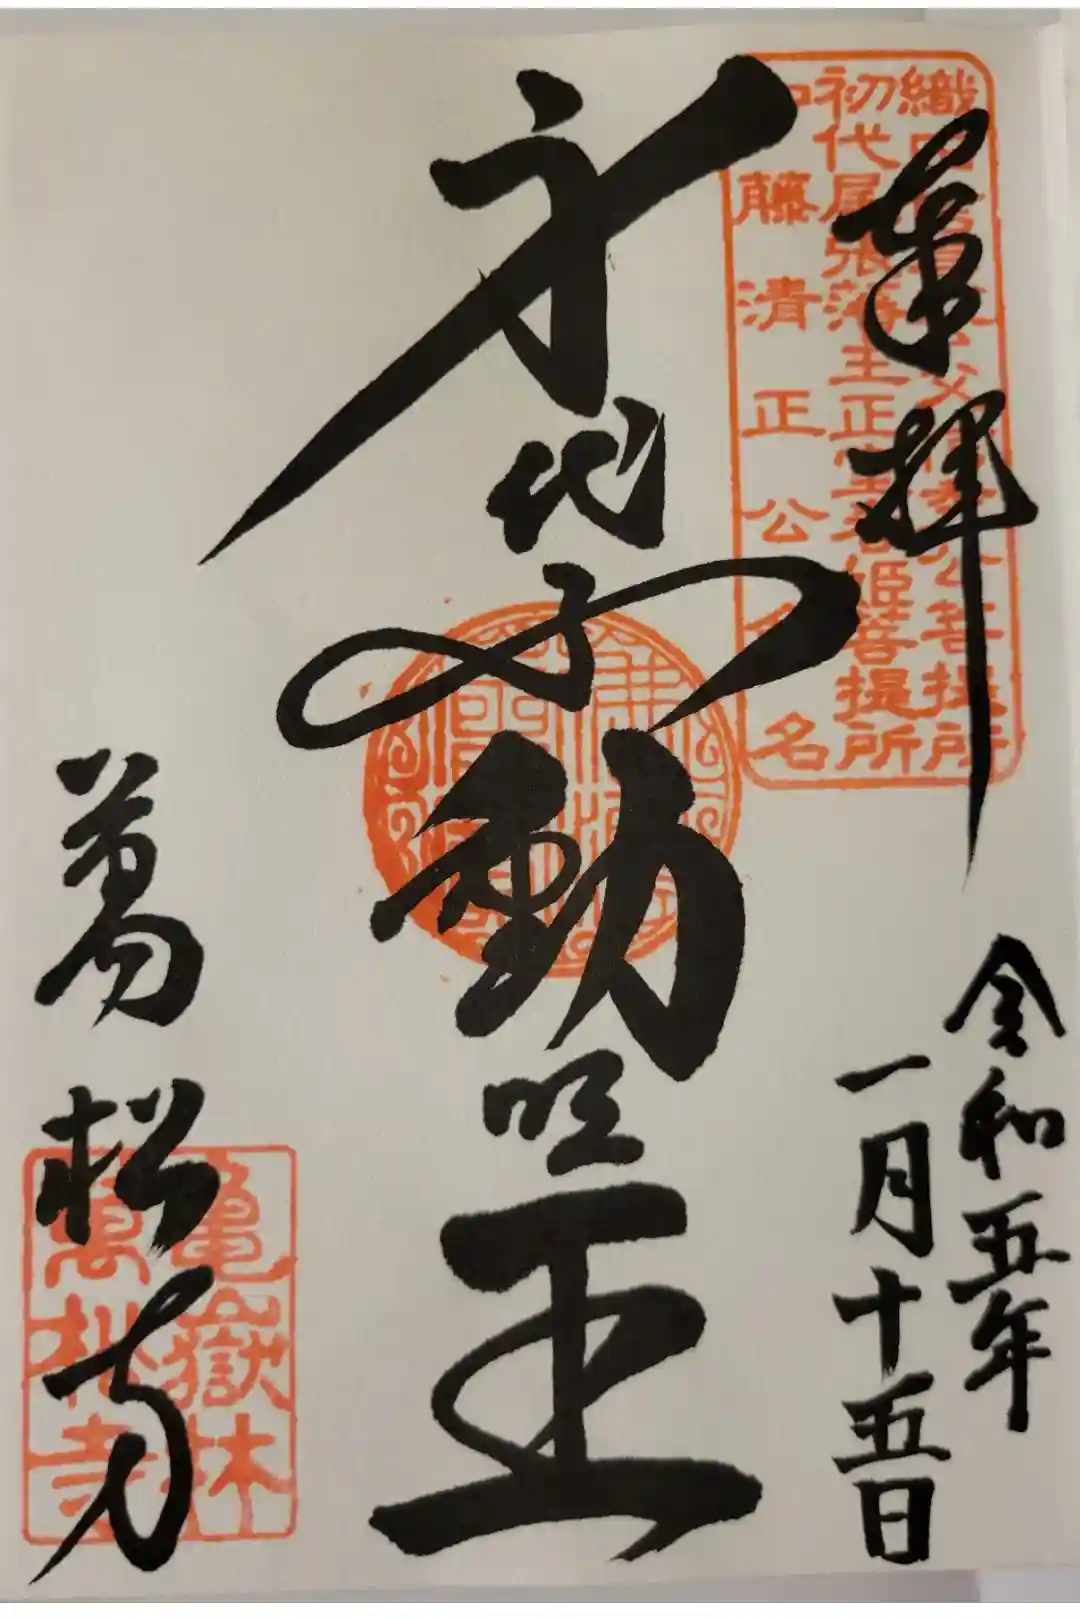 奉拝
令和五年
一月十五日
身代不動明王
萬松寺
初代尾張藩主正室春姫菩提所
加藤清正公命名
亀嶽林
萬松寺